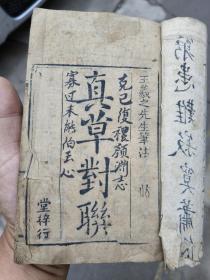 患難
王羲之先生筆法
克己復禮顏淵志
真草對聯
寡過未能伯玉心
堂梓行